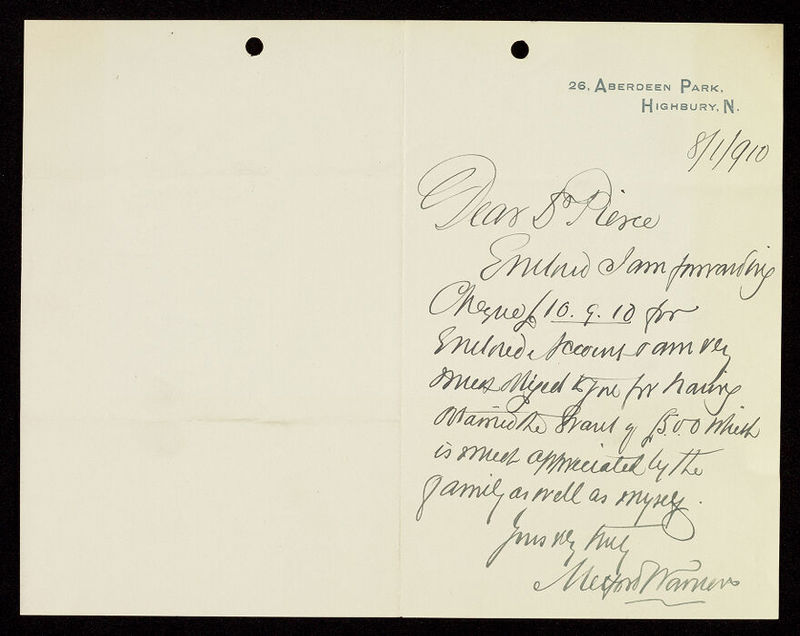 26, Aberdeen Park,
Highbury, N.
8/1/910
Dear Dr Pierce
Enclosed I am forwarding
Cheque £10.9.10 for
Enclosed Account & am very
much obliged to you for having
obtained the Grant of £5.0.0 which
is much appreciated by the
family as well as myself.
Yours very truly
Warners